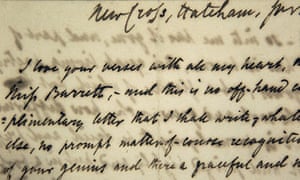 New Cross, Hatcham, Surr
I love your verses with all my heart, d
Miss Barrett,—and this is no off-hand c
plimentary letter that I shall write,—whate
else, no prompt matter-of-course recogniti
of your genius and there a graceful and n